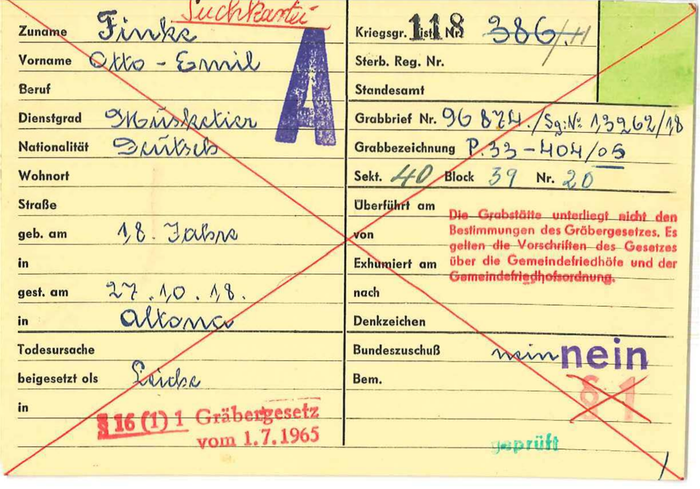 Suchkartei
Zuname Finke
Vorname Otto - Emil
Beruf
Dienstgrad Musketier
Nationalität Deutsch
Wohnort
Straße
geb. am 18. Jahre
in
gest. am 27.10.18.
in Altona
Todesursache
beigesetzt als Leiche
in
§ 16 (1) 1 Gräbergesetz
vom 1.7.1965
A
Kriegsgr. Liste Nr. 118 386/II
Sterb. Reg. Nr.
Standesamt
Grabbrief Nr. 96 874./Sg:Nr. 13262/18
Grabbezeichnung P.33-404/05
Sekt. 40 Block 39 Nr. 20
Überführt am
von
Exhumiert am
nach
Die Grabstätte unterliegt nicht den
Bestimmungen des Gräbergesetzes. Es
gelten die Vorschriften des Gesetzes
über die Gemeindefriedhöfe und der
Gemeindefriedhofsordnung.
Denkzeichen
Bundeszuschuß nein nein
Bem. § 1
geprüft